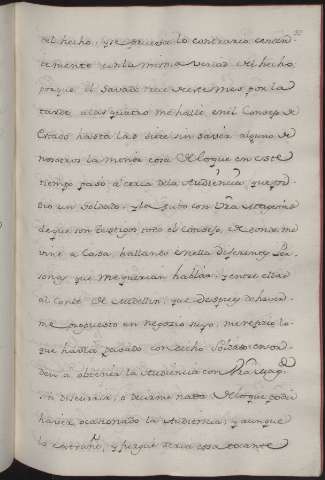 del hecho, y se prueba lo contrario eviden-
temente con la misma verdad del hecho
porque el Savado trece de este mes por la
tarde a las quatro me hallé en el Consejo de
Estado hasta las siete sin saver alguno de
nosotros la menor cosa de lo que en este
tiempo pasó acerca de la Audiencia, que pi-
dio un Soldado, y la tubo con Vra Magestad
de que son testigos todo el Consejo, de donde me
vine a Casa, hallando en ella diferentes Per-
sonas que me querian hablar, y entre ellas
al Conde de Medellin, que despues de haver-
me propuesto un negozio suyo, me refirio lo
que havia pasado con dicho Soldado en or-
den a obtener la Audiencia con Vra Magd.
sin discurrir, o decirme nada de lo que podia
haver ocasionado la Audiencia, y aunque
lo estrañé, y juzgué seria cosa tocante